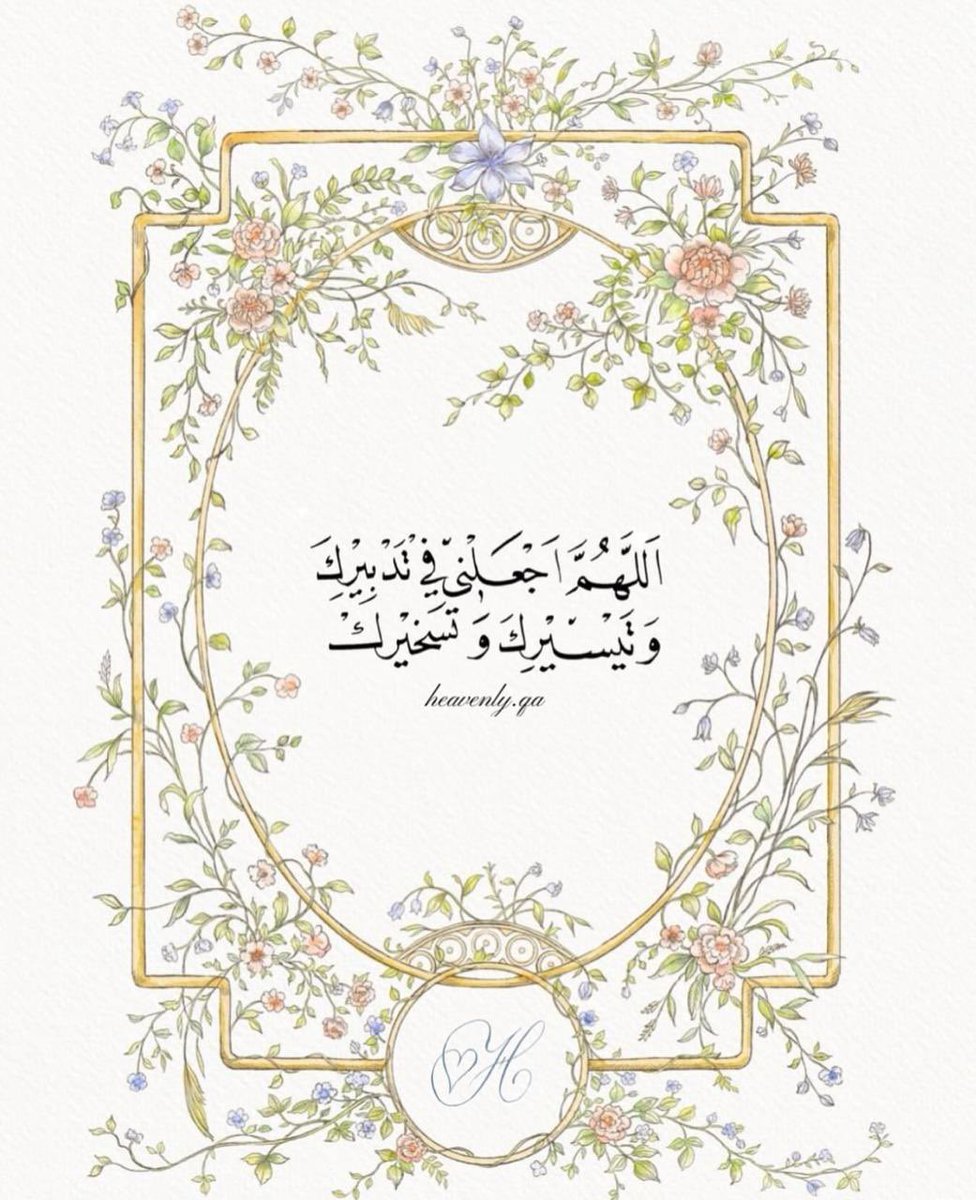 اَللَّهُمَّ اَجْعَلْنيّ فِيْ تَدْبِيْرِكَ
وَ تَيْسّيْرِكَ وَ تَسَخيْرِكْ
heavenly.qa
H